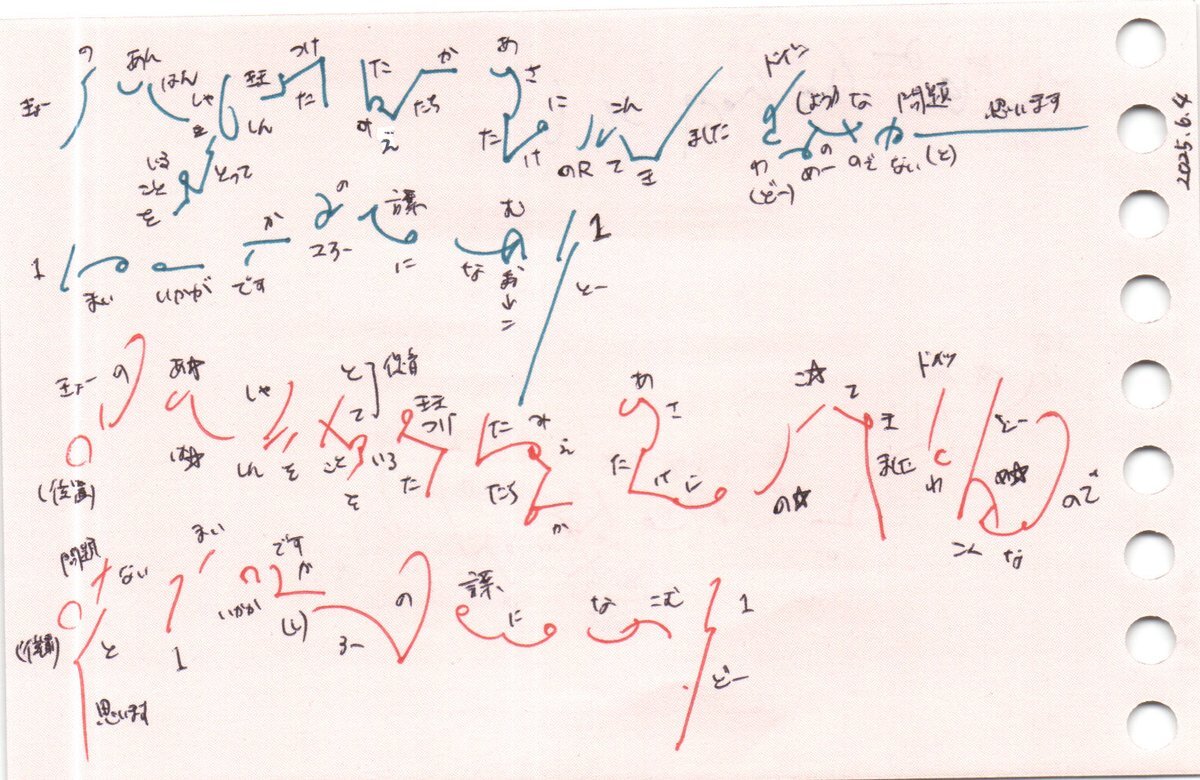 の あん つけ た か あ ドイツ
きょー はん しゃ 王王 た たち さ に こん (よう) な 問題 思います
を しん み え た け のR て ま ました わ の ので ない(と)
いる とって (どー) めー
こと
を
2025.6.4
か の 課 む 1
1 まい いかが です ころー に な お↓こ どー
きょー の あ☆ しゃ と 促音 王王 た み あ こ☆ て ドイツ どー
(位置) は☆ しん を こと て いる つけ え さ ま ました わ め☆ ので
を た たち か た け に の☆ こん な
問題 ない まい です の 課 な こむ 1
(位置) と 1 いかが か (し) ろー に どー
思います